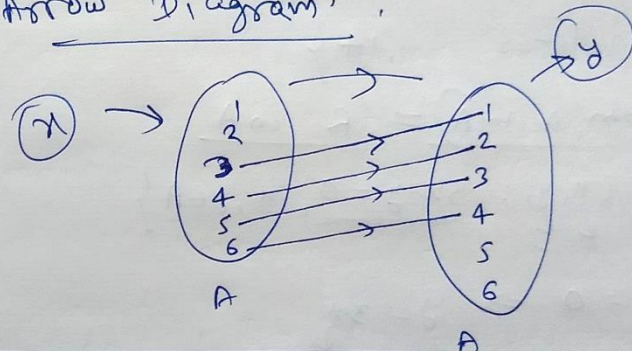 Arrow Diagram.
x
y
1
2
3
4
5
6
A
1
2
3
4
5
6
A